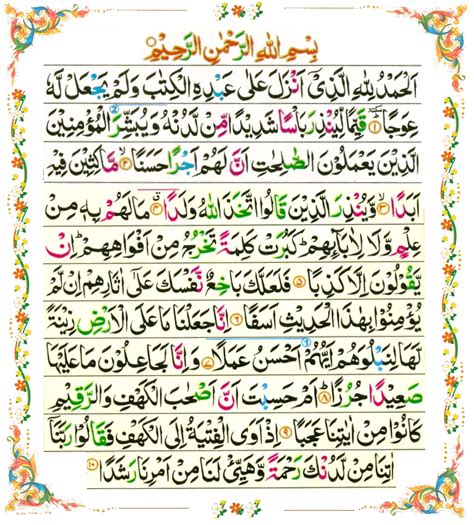 بِسْمِ اللهِ الرَّحْمٰنِ الرَّحِيْمِ
اَلْحَمْدُ لِلّٰهِ الَّذِيْٓ اَنْزَلَ عَلٰى عَبْدِهِ الْكِتٰبَ وَلَمْ يَجْعَلْ لَّهٗ
عِوَجًا ۜ ۱ قَيِّمًا لِّيُنْذِرَ بَاْسًا شَدِيْدًا مِّنْ لَّدُنْهُ وَيُبَشِّرَ الْمُؤْمِنِيْنَ
الَّذِيْنَ يَعْمَلُوْنَ الصّٰلِحٰتِ اَنَّ لَهُمْ اَجْرًا حَسَنًا ۲ مَّاكِثِيْنَ فِيْهِ
اَبَدًا ۳ وَّيُنْذِرَ الَّذِيْنَ قَالُوا اتَّخَذَ اللّٰهُ وَلَدًا ۴ مَا لَهُمْ بِهٖ مِنْ
عِلْمٍ وَّلَا لِاٰبَآئِهِمْ ؕ كَبُرَتْ كَلِمَةً تَخْرُجُ مِنْ اَفْوَاهِهِمْ ؕ اِنْ
يَّقُوْلُوْنَ اِلَّا كَذِبًا ۵ فَلَعَلَّكَ بَاخِعٌ نَّفْسَكَ عَلٰٓى اٰثَارِهِمْ اِنْ لَّمْ
يُؤْمِنُوْا بِهٰذَا الْحَدِيْثِ اَسَفًا ۶ اِنَّا جَعَلْنَا مَا عَلَى الْاَرْضِ زِيْنَةً
لَّهَا لِنَبْلُوَهُمْ اَيُّهُمْ اَحْسَنُ عَمَلًا ۷ وَاِنَّا لَجٰعِلُوْنَ مَا عَلَيْهَا
صَعِيْدًا جُرُزًا ؕ ۸ اَمْ حَسِبْتَ اَنَّ اَصْحٰبَ الْكَهْفِ وَالرَّقِيْمِ
كَانُوْا مِنْ اٰيٰتِنَا عَجَبًا ۹ اِذْ اَوَى الْفِتْيَةُ اِلَى الْكَهْفِ فَقَالُوْا رَبَّنَآ
اٰتِنَا مِنْ لَّدُنْكَ رَحْمَةً وَّهَيِّئْ لَنَا مِنْ اَمْرِنَا رَشَدًا ۱۰